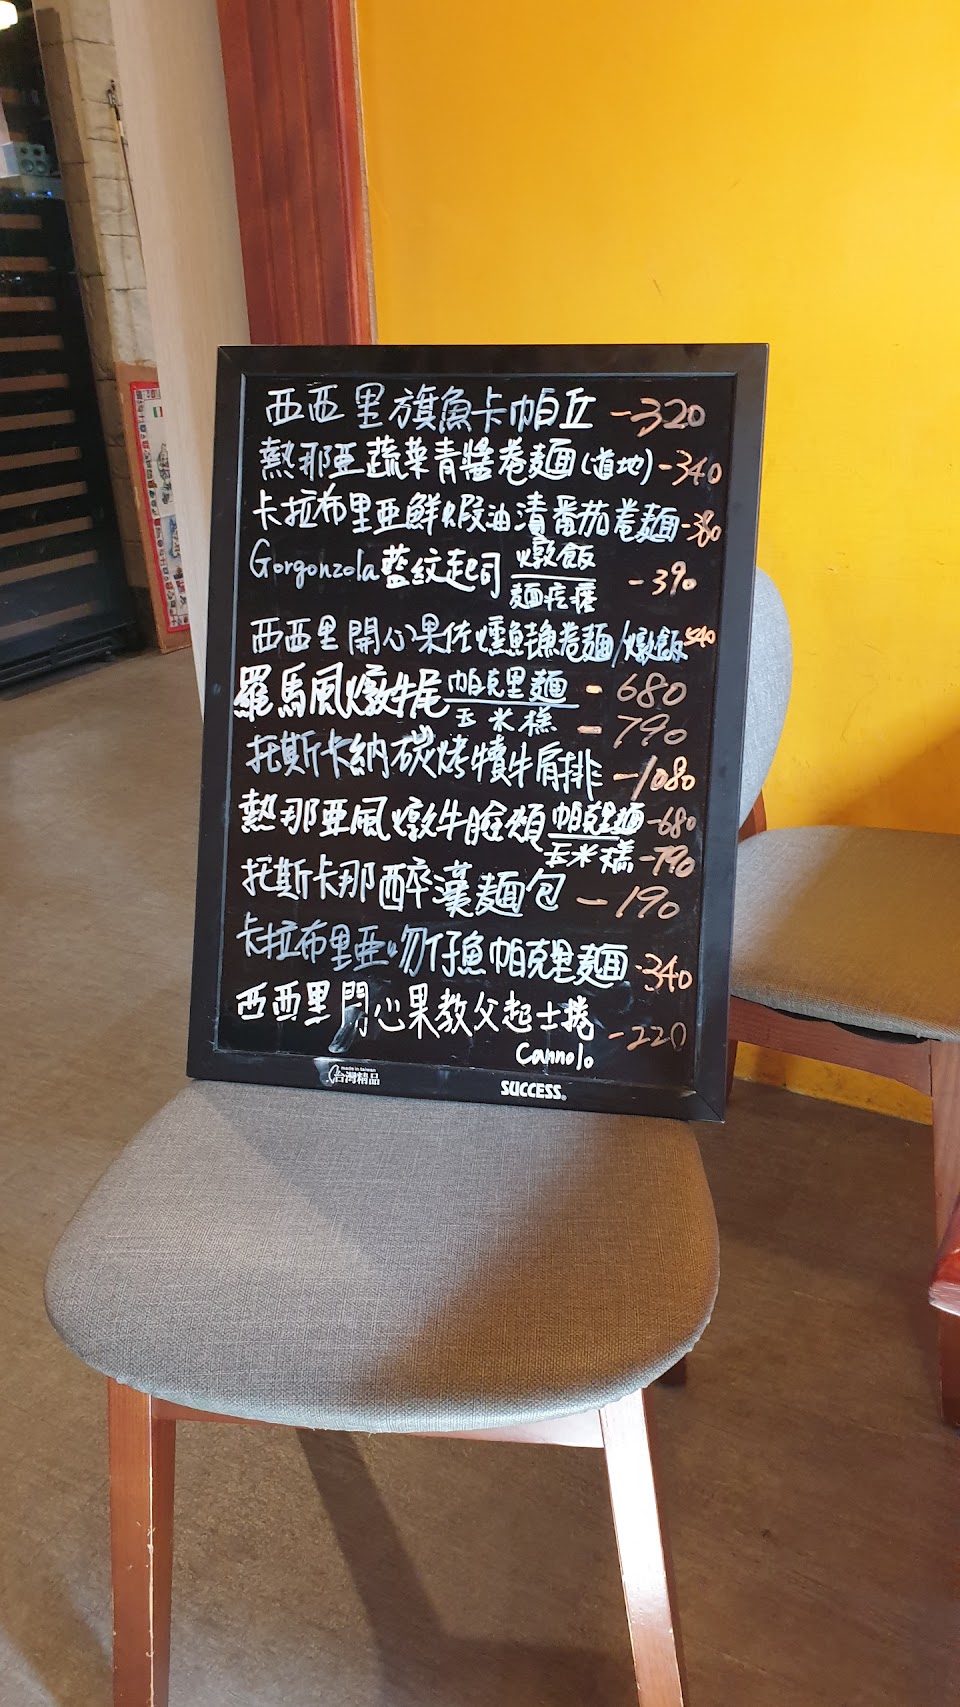 西西里旗魚卡帕丘 -320
熱那亞蔬菜青醬卷麵(道地) -340
卡拉布里亞鮮蝦油漬番茄卷麵 -380
Gorgonzola藍紋起司 燉飯 -390
麵疙瘩
西西里開心果佐燻鮭魚卷麵/燉飯 540
羅馬風燉牛尾 帕克里麵 - 680
玉米糕 - 790
托斯卡納碳烤犢牛肩排 -1080
熱那亞風燉牛臉頰 帕克里麵 -680
玉米糕 -790
托斯卡那醉漢麵包 - 190
卡拉布里亞吻仔魚帕克里麵 -340
西西里開心果教父起士捲 -220
Cannolo
made in taiwan
台灣精品
SUCCESS®